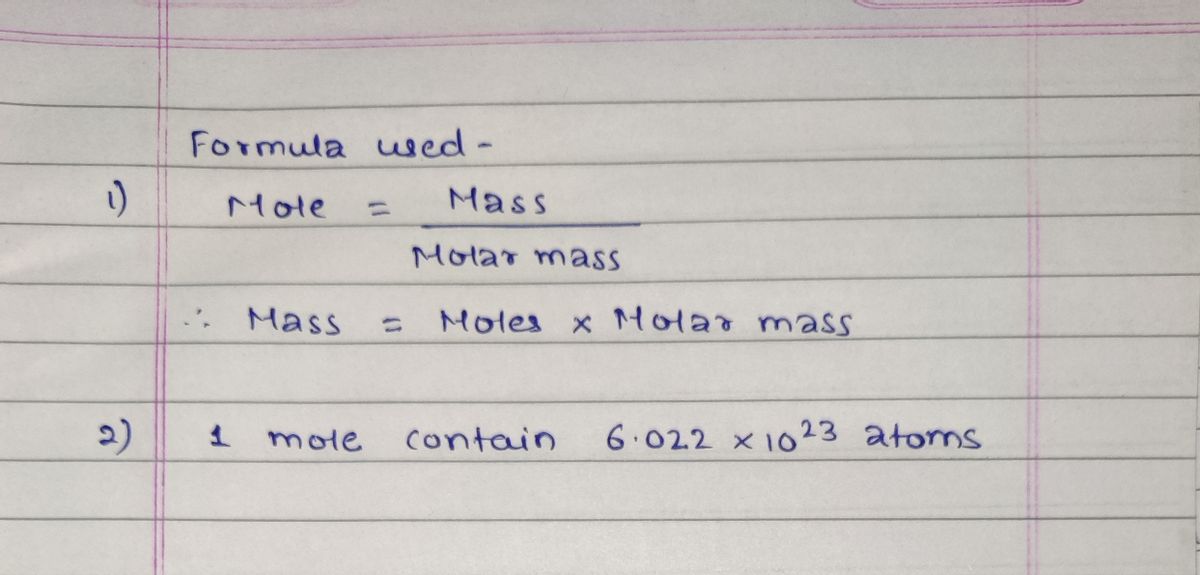 Formula used -
1) Mole = Mass
Molar mass
∴ Mass = Moles x Molar mass
2) 1 mole contain 6.022 x 10²³ atoms